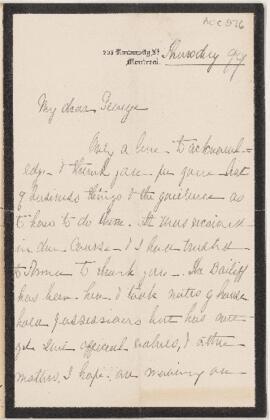 ACC 576
University St
Montreal.
Thursday
My dear George
Only a line to acknowl-
edge & thank you for your list
of business things & the guidance as
to how to do them. It was received
in due course & I have trusted
to Anna to thank you. The Bailiff
has been here & took notes of house
hold possessions but has not
yet sent official values, & other
matters, I hope, are moving on